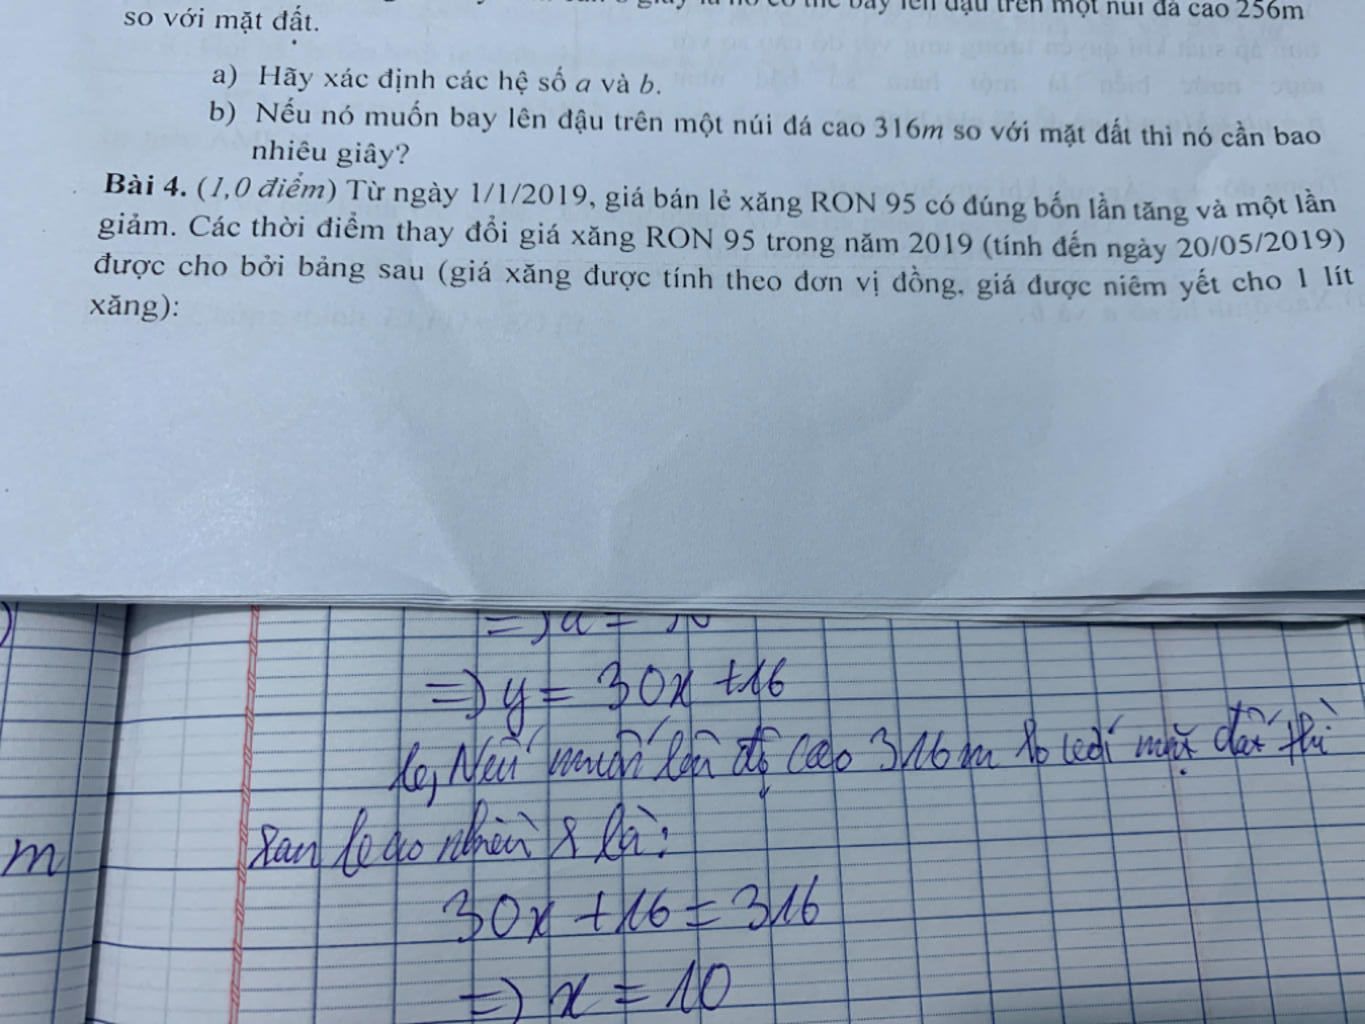 so với mặt đất.
bay lên đậu trên một núi đá cao 256m
a) Hãy xác định các hệ số a và b.
b) Nếu nó muốn bay lên đậu trên một núi đá cao 316m so với mặt đất thì nó cần bao
nhiêu giây?
Bài 4. (1,0 điểm) Từ ngày 1/1/2019, giá bán lẻ xăng RON 95 có đúng bốn lần tăng và một lần
giảm. Các thời điểm thay đổi giá xăng RON 95 trong năm 2019 (tính đến ngày 20/05/2019)
được cho bởi bảng sau (giá xăng được tính theo đơn vị đồng, giá được niêm yết cho 1 lít
xăng):
=> y = 30x + 16
b, Nếu muốn lên độ cao 316m so với mặt đất thì
sau bao nhiêu s là:
m
30x + 16 = 316
=> x = 10